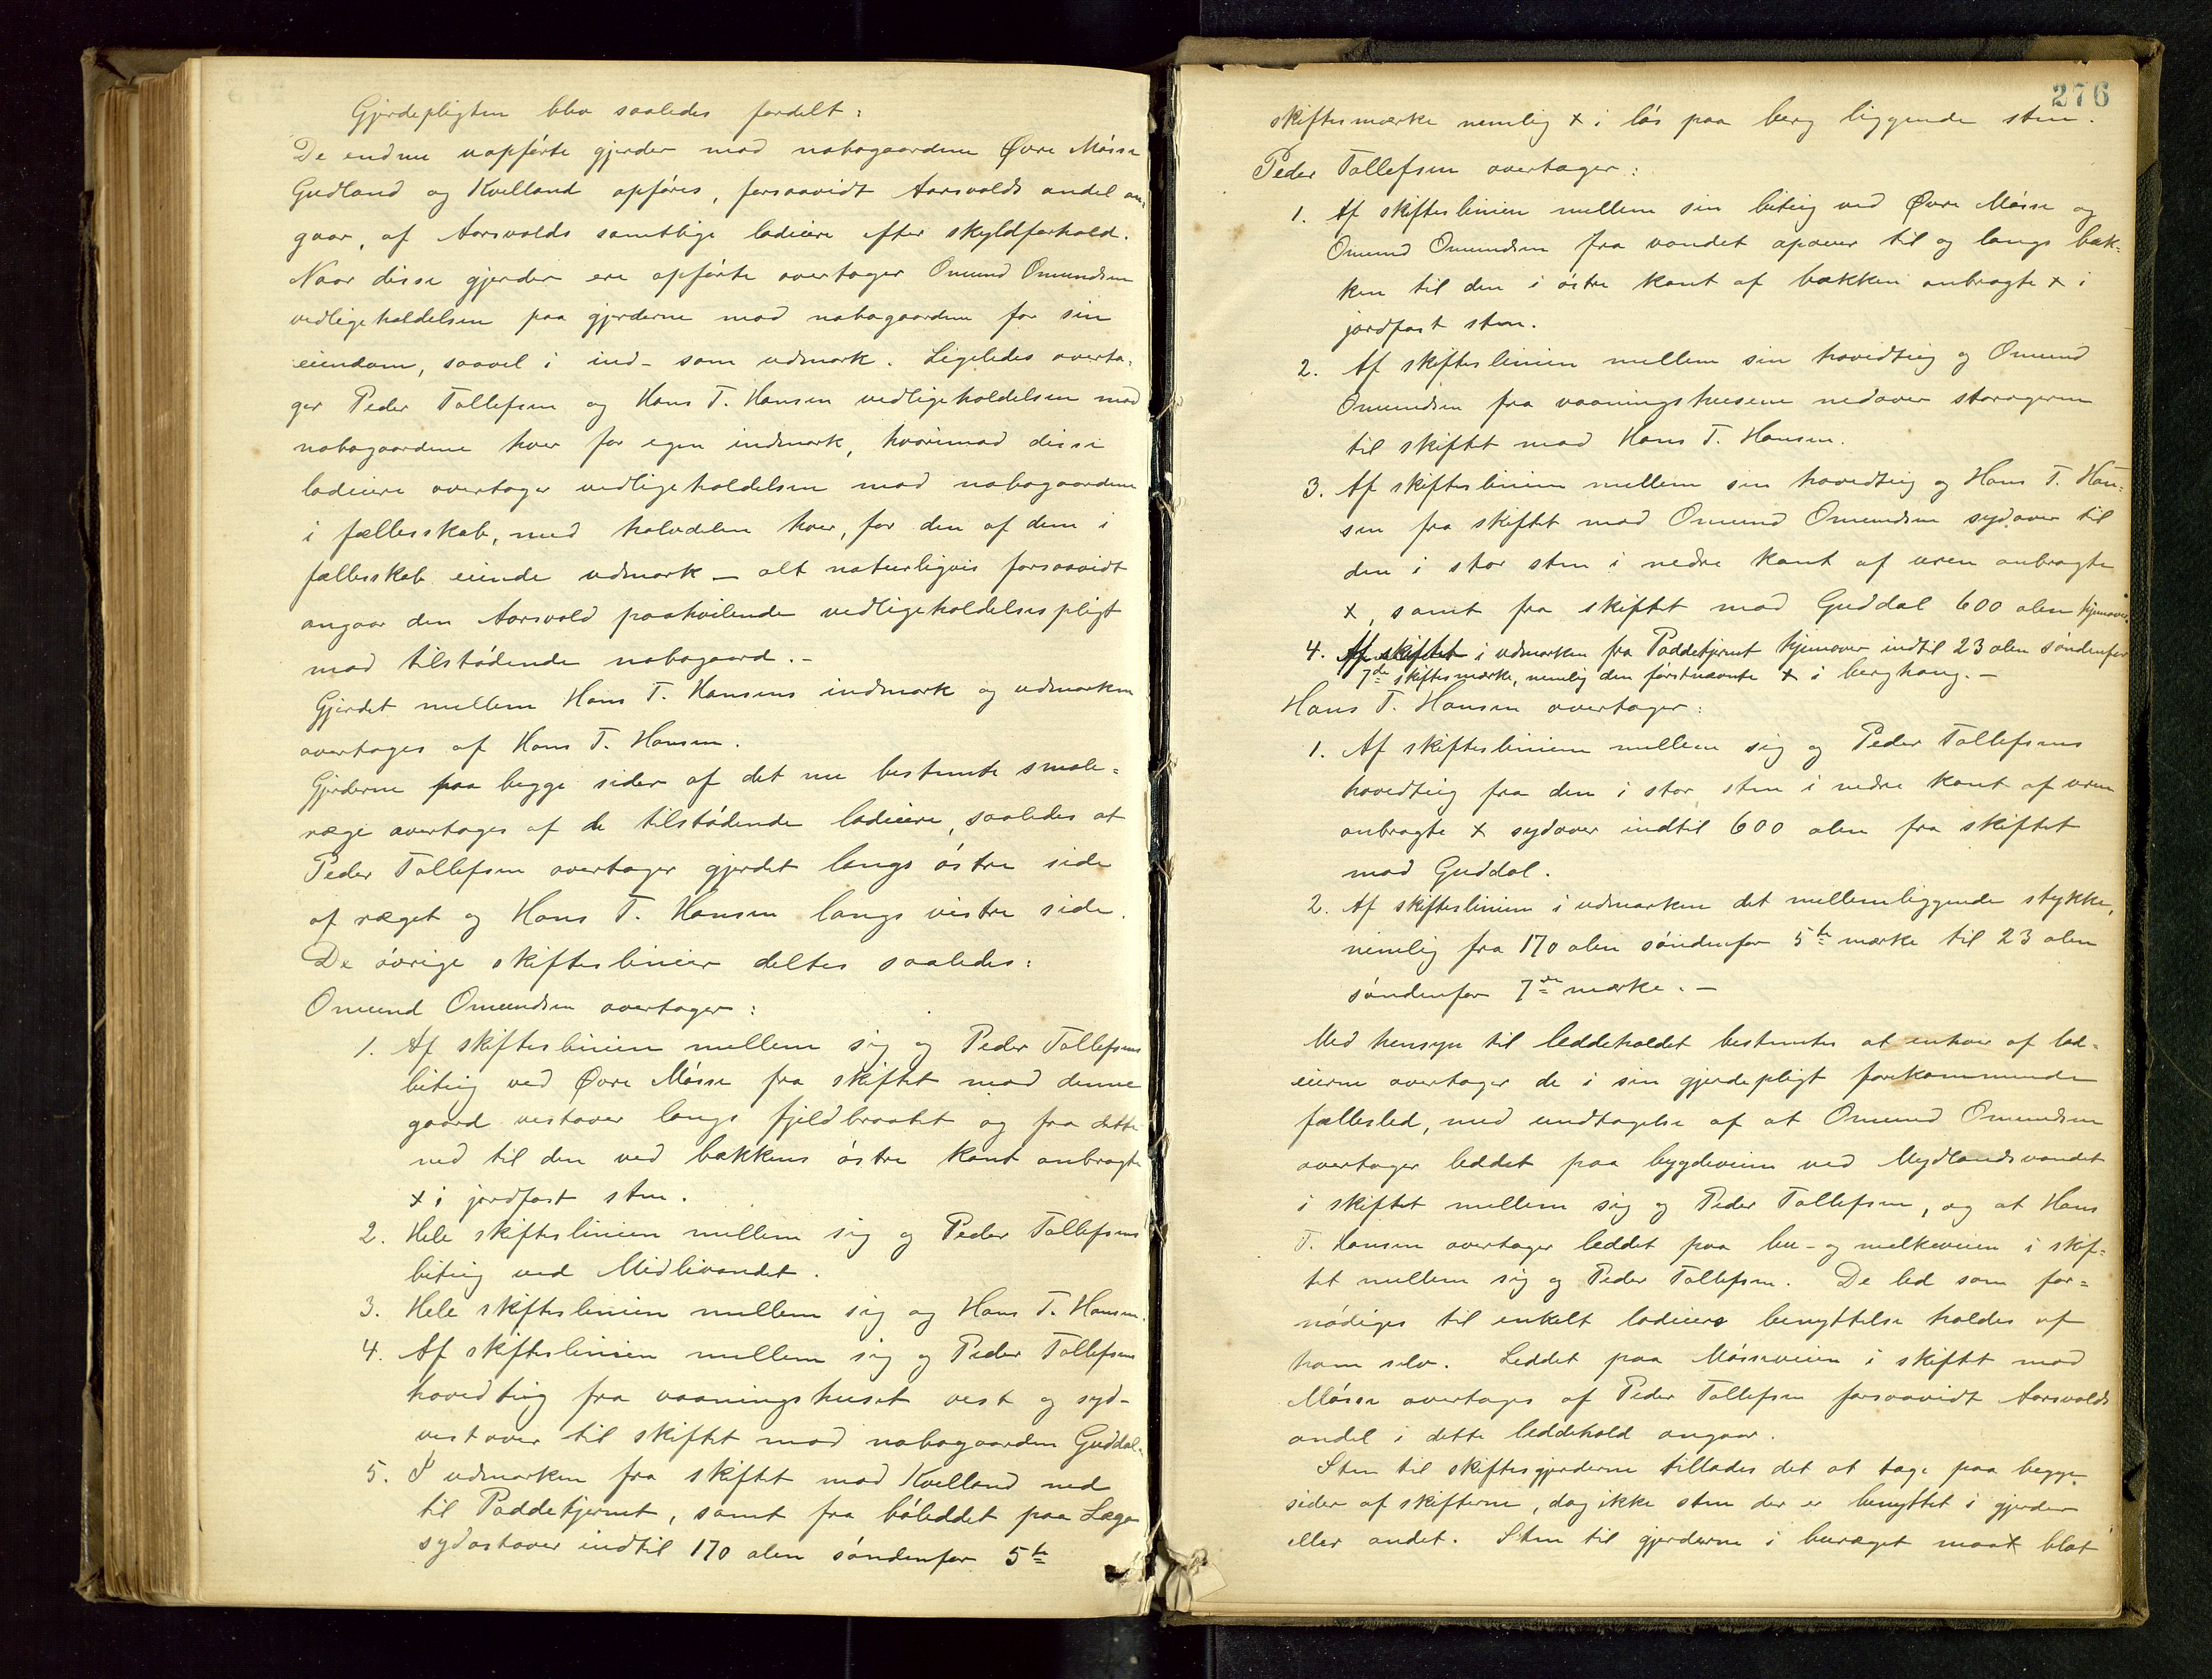 Gjerdepligten blev saaledes fordelt:
De endnu uopførte gjerder mod nabogaardene Øvre Møsse
Gudland og Kvelland opføres, forsaavidt Aarsvolds andel an-
gaar, af Aarsvolds samtlige lodeiere efter skyldforhold.
Naar disse gjerder ere opførte overtager Omund Omundsen
vedligeholdelsen paa gjerderne mod nabogaardene for sin
eiendom, saavel i ind- som udmark. Ligeledes overta-
ger Peder Tollefsen og Hans T. Hansen vedligeholdelsen mod
nabogaardene hver for egen indmark, hvorimod disse
lodeiere overtager vedligeholdelsen mod nabogaardene
i fællesskab, med halvdelen hver, for den af dem i
fællesskab eiende udmark – alt naturligvis forsaavidt
angaar den Aarsvold paahvilende vedligeholdelsespligt
mod tilstødende nabogaard. –
Gjerdet mellem Hans T. Hansens indmark og udmarken
overtages af Hans T. Hansen.
Gjerderne paa begge sider af det nu bestemte smale-
ræge overtages af de tilstødende lodeiere, saaledes at
Peder Tollefsen overtager gjerdet langs østre side
af ræget og Hans T. Hansen langs vestre side.
De øvrige skifteslinier deltes saaledes:
Omund Omundsen overtager:
1. Af skifteslinien mellem sig og Peder Tollefsens
beiteig ved Øvre Møsse fra skiftet mod denne
gaard vestover langs fjeldbraatet og fra dette
ned til den ved bækkens østre kant anbragte
x i jordfast sten.
2. Hele skifteslinien mellem sig og Peder Tollefsens
beiteig ved Midlivandet.
3. Hele skifteslinien mellem sig og Hans T. Hansen.
4. Af skifteslinien mellem sig og Peder Tollefsens
hovedteig fra vaaningshuset vest og syd-
vestover til skiftet mod nabogaarden Guddal.
5. I udmarken fra skiftet mod Kvelland ned
til Paddetjernet, samt fra bøleddet paa Læga
sydostover indtil 170 alen søndenfor 5te
276
skiftesmærke nemlig x i løs paa berg liggende sten.
Peder Tollefsen overtager:
1. Af skifteslinien mellem sin beiteig ved Øvre Møsse og
Omund Omundsen fra vandet opover til og langs bæk-
ken til den i østre kant af bækken anbragte x i
jordfast sten.
2. Af skifteslinien mellem sin hovedteig og Omund
Omundsen fra vaaningshusene nedover storageren
til skiftet mod Hans T. Hansen.
3. Af skifteslinien mellem sin hovedteig og Hans T. Han-
sen fra skiftet mod Omund Omundsen sydover til
den i stor sten i nedre kant af uren anbragte
x, samt fra skiftet mod Guddal 600 alen hjemover.
4. Af skiftet i udmarken fra Paddetjernet hjemover indtil 23 alen søndenfor
7de skiftesmærke, nemlig den førstnævnte x i berghaug. –
Hans T. Hansen overtager:
1. Af skifteslinien mellem sig og Peder Tollefsens
hovedteig fra den i stor sten i nedre kant af uren
anbragte x sydover indtil 600 alen fra skiftet
mod Guddal.
2. Af skifteslinien i udmarken det mellemliggende stykke,
nemlig fra 170 alen søndenfor 5te mærke til 23 alen
søndenfor 7de mærke. –
Med hensyn til leddeholdet bestemtes at enhver af lod-
eierne overtager de i sin gjerdepligt forekommende
fællesled, med undtagelse af at Omund Omundsen
overtager leddet paa bygdeveien ved Mydlandsvandet
i skiftet mellem sig og Peder Tollefsen, og at Hans
T. Hansen overtager leddet paa bu- og melkeveien i skif-
tet mellem sig og Peder Tollefsen. De led som for-
nødiges til enkelt lodeiers benyttelse holdes af
ham selv. Leddet paa Møsseveien i skiftet mod
Møsse overtages af Peder Tollefsen forsaavidt Aarsvolds
andel i dette leddehold angaar.
Sten til skiftesgjerderne tillades det at tage paa begge
sider af skifterne, dog ikke sten der er benyttet i gjerder
eller andet. Sten til gjerderne i buræget maa blot